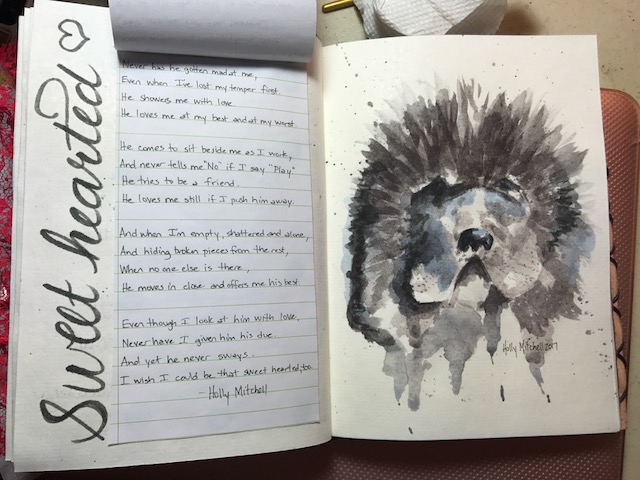 Sweet hearted
Never has he gotten mad at me,
Even when I've lost my temper first.
He showers me with love
He loves me at my best and at my worst.
He comes to sit beside me as I work,
And never tells me "No" if I say "Play"
He tries to be a friend.
He loves me still if I push him away.
And when I'm empty, shattered and alone,
And hiding broken pieces from the rest,
When no one else is there,
He moves in close and offers me his best
Even though I look at him with love,
Never have I given him his due.
And yet he never sways.
I wish I could be that sweet hearted, too.
-Holly Mitchell
Holly Mitchell 2017